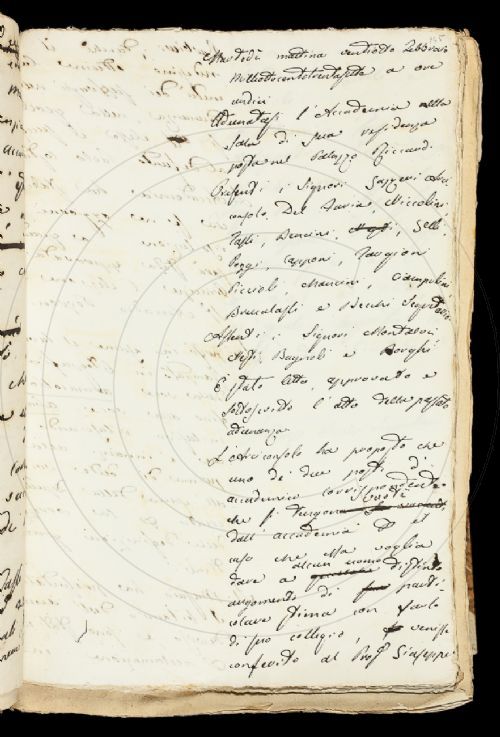 Martedì mattina ventotto Febbraio
milleottocentotrentasette a ore
undici
Adunatasi l'Accademia nella
sala di sua residenza
posta nel Palazzo Riccardi
Presenti i Signori Arci
consolo, Del Furia, Niccolini
Tassi, Bencini, Selli
Poggi, Capponi, Targioni
Piccioli, Mancini, Ciampolini
Brucalassi e Becchi Segretario
Assenti i Signori Montalvi
Bagnoli e Borghi
È stato letto, approvato e
sottoscritto l'atto della passata
adunanza
L'Arciconsolo ha proposto che
uno de' due posti di
accademico corrispondente
che si tengono vuoti
dall'accademia
caso che essa voglia
dare a alcun uomo distinto
argomento di parti
colare stima con farlo
di suo collegio, venisse
conferito al Prof. Giuseppe